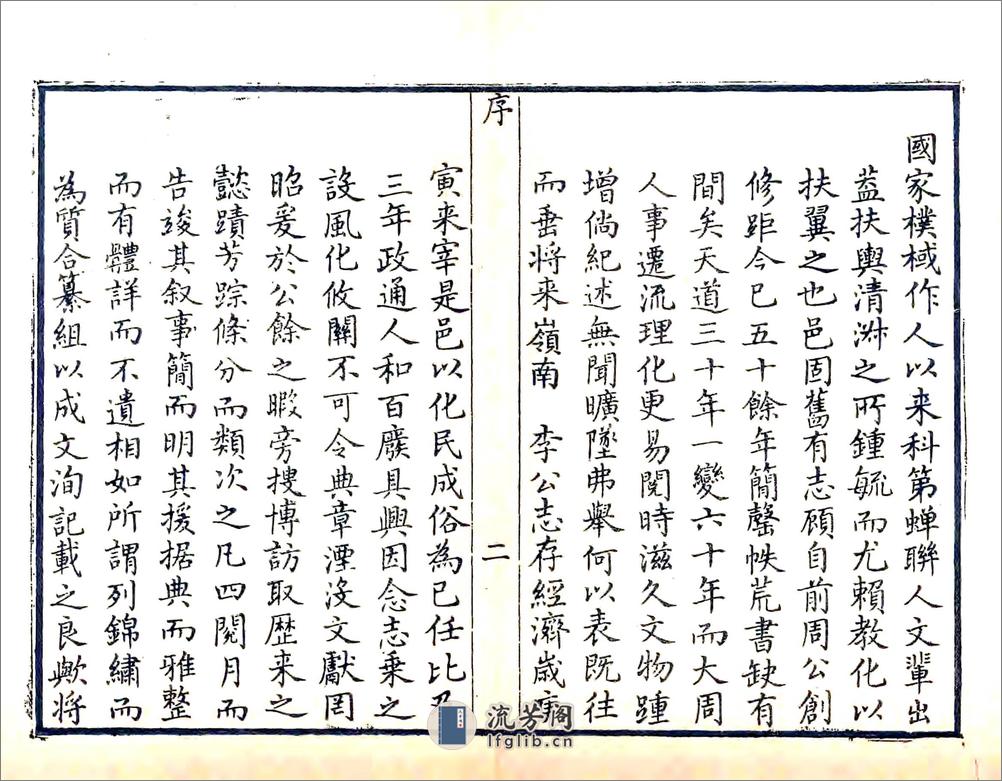 國家樸棫作人以来科第蝉聯人文輩出
葢扶輿清淑之所鍾毓而尤賴教化以
扶翼之也邑固舊有志顧自前周公創
修距今已五十餘年簡罄帙荒書缺有
間矣天道三十年一變六十年而大周
人事遷流理化更易閱時滋久文物踵
增倘紀述無聞曠墜弗舉何以表既往
而垂将来嶺南 李公志存經濟歲庚
序
二
寅来宰是邑以化民成俗為己任比及
三年政通人和百廢具興因念志乗之
設風化攸關不可令典章湮没文獻罔
昭爰於公餘之暇旁搜博訪取歷来之
懿蹟芳踪條分而類次之凡四閱月而
告竣其叙事簡而明其援据典而雅整
而有體詳而不遺相如所謂列錦繡而
為質合纂組以成文洵記載之良歟将
流芳阁
lfglib.cn